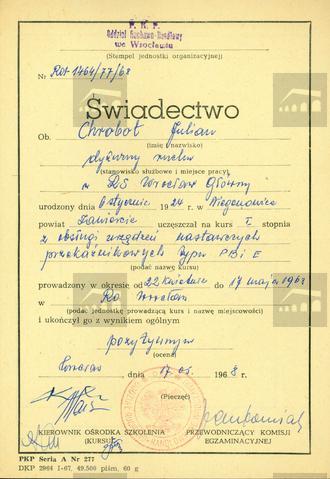 P. K. P.
Oddział Ruchowo-Handlowy
we Wrocławiu
(Stempel jednostki organizacyjnej)
Nr Rot 1464/77/68
Świadectwo
Ob. Chrobot Julian
(imię i nazwisko)
dyżurny ruchu
(stanowisko służbowe i miejsce pracy)
w Wrocław Główny
urodzony dnia 6 stycznia 1924 r. w
powiat Zawiercie uczęszczał na kurs I stopnia
z obsługi urządzeń nastawczych
przekaźnikowych typu PB i E
(podać nazwę kursu)
prowadzony w okresie od 22 kwietnia do 17 maja 1968
w Ro Wrocław
(podać jednostkę prowadzącą kurs i nazwę miejscowości)
i ukończył go z wynikiem ogólnym
pozytywnym
(ocena)
Wrocław, dnia 17.05. 1968 r.
(Pieczęć)
KIEROWNIK OŚRODKA SZKOLENIA
(KURSU)
PRZEWODNICZĄCY KOMISJI
EGZAMINACYJNEJ
PKP Seria A Nr 277
DKP 2964 I-67, 49.500 piśm. 60 g